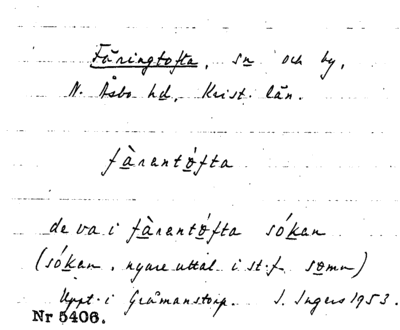 Färingtofta, sn och by,
N. Åsbo hd, Krist. län.
fàrantófta
de va i fàrantófta sókan
(sókan, nyare uttal i st. f. somn)
Uppt. i Gråmanstorp. I. Ingers 1953.
Nr 5406.